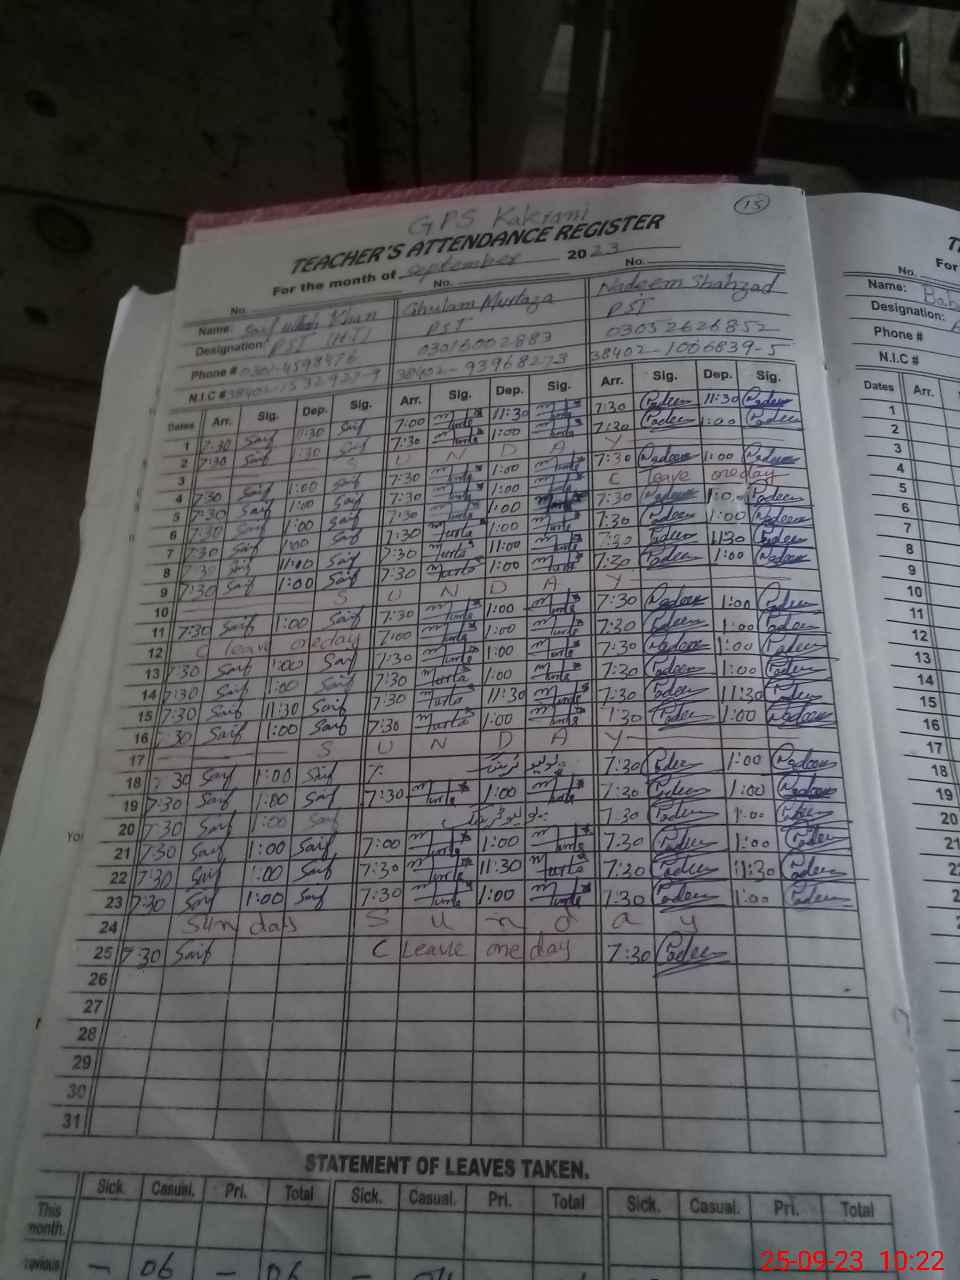 15
GPS Kakrani
TEACHER'S ATTENDANCE REGISTER
For the month of September 2023
No. No. No.
Name: Saif ullah Khan Ghulam Murtaza Nadeem Shahzad
Designation: PST (HT) PST PST
Phone # 0301-4598476 03016002883 03032626852
N.I.C # 38402-1532927-9 38402-93968273 38402-1006839-5
Dates Arr. Sig. Dep. Sig. Arr. Sig. Dep. Sig. Arr. Sig. Dep. Sig.
1 7:30 Saif 11:30 Saif 7:00 Murta 11:30 Murta 7:30 Nadeem 11:30 Nadeem
2 7:30 Saif 1:30 Saif 7:30 Murta 1:00 Murta 7:30 Nadeem 1:00 Nadeem
3 S U N D A Y
4 7:30 Saif 1:00 Saif 7:30 Murta 1:00 Murta 7:30 Nadeem 1:00 Nadeem
5 7:30 Saif 1:00 Saif 7:30 Murta 1:00 Murta C leave one day
6 7:30 Saif 1:00 Saif 7:30 Murta 1:00 Murta 7:30 Nadeem 1:00 Nadeem
7 7:30 Saif 1:00 Saif 7:30 Murta 1:00 Murta 7:30 Nadeem 1:00 Nadeem
8 7:30 Saif 11:00 Saif 7:30 Murta 11:00 Murta 7:30 Nadeem 11:30 Nadeem
9 7:30 Saif 1:00 Saif 7:30 Murta 1:00 Murta 7:30 Nadeem 1:00 Nadeem
10 S U N D A Y
11 7:30 Saif 1:00 Saif 7:30 Murta 1:00 Murta 7:30 Nadeem 1:00 Nadeem
12 C leave one day 7:00 Murta 1:00 Murta 7:30 Nadeem 1:00 Nadeem
13 7:30 Saif 1:00 Saif 7:30 Murta 1:00 Murta 7:30 Nadeem 1:00 Nadeem
14 7:30 Saif 1:00 Saif 7:30 Murta 1:00 Murta 7:30 Nadeem 1:00 Nadeem
15 7:30 Saif 11:30 Saif 7:30 Murta 11:30 Murta 7:30 Nadeem 11:30 Nadeem
16 7:30 Saif 1:00 Saif 7:30 Murta 1:00 Murta 1:30 Nadeem 1:00 Nadeem
17 S U N D A Y
18 7:30 Saif 1:00 Saif 7: 7:30 Nadeem 1:00 Nadeem
19 7:30 Saif 1:00 Saif 7:30 Murta 1:00 Murta 7:30 Nadeem 1:00 Nadeem
20 7:30 Saif 1:00 Saif 7:30 Nadeem 1:00 Nadeem
21 7:30 Saif 1:00 Saif 7:00 Murta 1:00 Murta 7:30 Nadeem 1:00 Nadeem
22 7:30 Saif 1:00 Saif 7:30 Murta 11:30 Murta 7:30 Nadeem 11:30 Nadeem
23 7:30 Saif 1:00 Saif 7:30 Murta 1:00 Murta 7:30 Nadeem 1:00 Nadeem
24 Sunday S u n d a y
25 7:30 Saif C Leave one day 7:30 Nadeem
26
27
28
29
30
31
STATEMENT OF LEAVES TAKEN.
Sick. Casual. Pri. Total Sick. Casual. Pri. Total Sick. Casual. Pri. Total
This month.
- 06 - 06 -
No.
Name:
Designation:
Phone #
N.I.C #
Dates Arr.
1
2
3
4
5
6
7
8
9
10
11
12
13
14
15
16
17
18
19
20
21
25-09-23 10:22